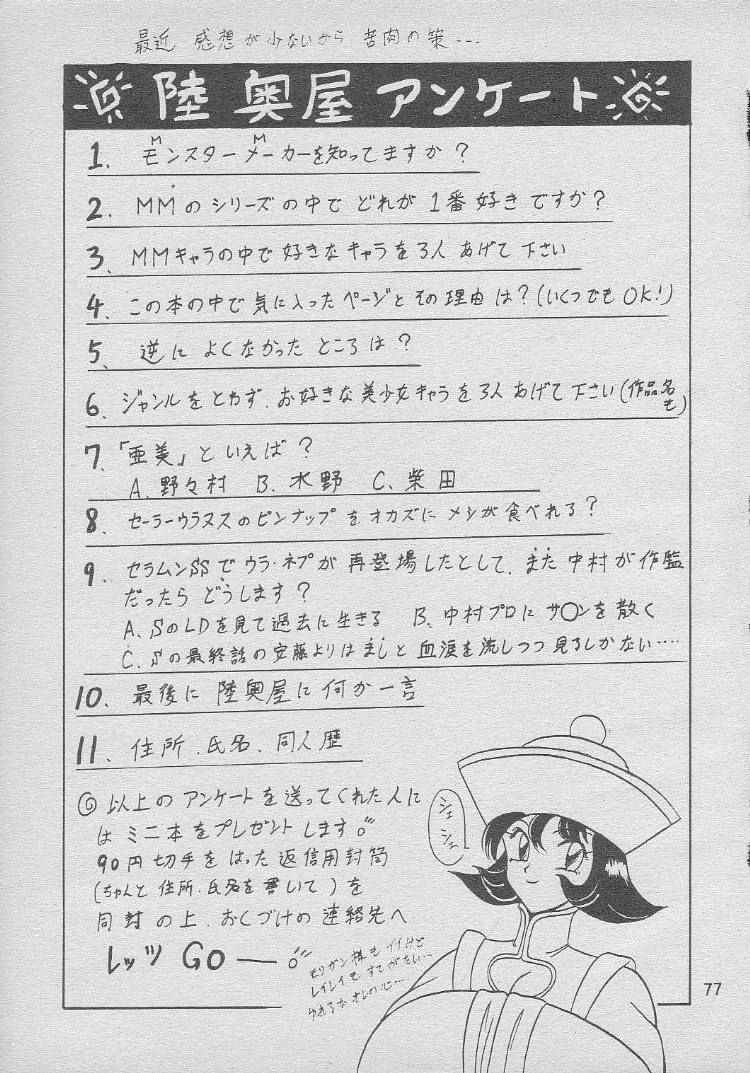 最近 感想が少ないから 苦肉の策...
陸奥屋アンケート
M M
1. モンスターメーカーを知ってますか?
2. MMのシリーズの中で どれが 1番好きですか?
3. MMキャラの中で好きなキャラを3人あげて下さい
4. この本の中で気に入ったページとその理由は?(いくつでもOK!)
5. 逆に よくなかった ところは?
6. ジャンルをとわず、お好きな美少女キャラを3人あげて下さい(作品名も)
7. 「亜美」といえば?
A. 野々村 B. 水野 C. 柴田
8. セーラーウラヌスのピンナップをオカズにメシが食べれる?
9. セラムンSSでウラ・ネプが再登場したとして、また中村が作監
だったら どうします?
A. SのLDを見て過去に生きる B. 中村プロにサ〇ンを散く
C. Sの最終話の安藤よりはましと血涙を流しつつ見るしかない....
10. 最後に 陸奥屋に何か一言
11. 住所、氏名、同人歴
◎以上のアンケートを送ってくれた人に
はミニ本をプレゼントします。
90円切手をはった返信用封筒
(ちゃんと住所、氏名を書いて)を
同封の上、おくづけの連絡先へ
レッツ GO—。
シェ
シェ
モリガン様もイイけど
レイレイもすてがたい...
77